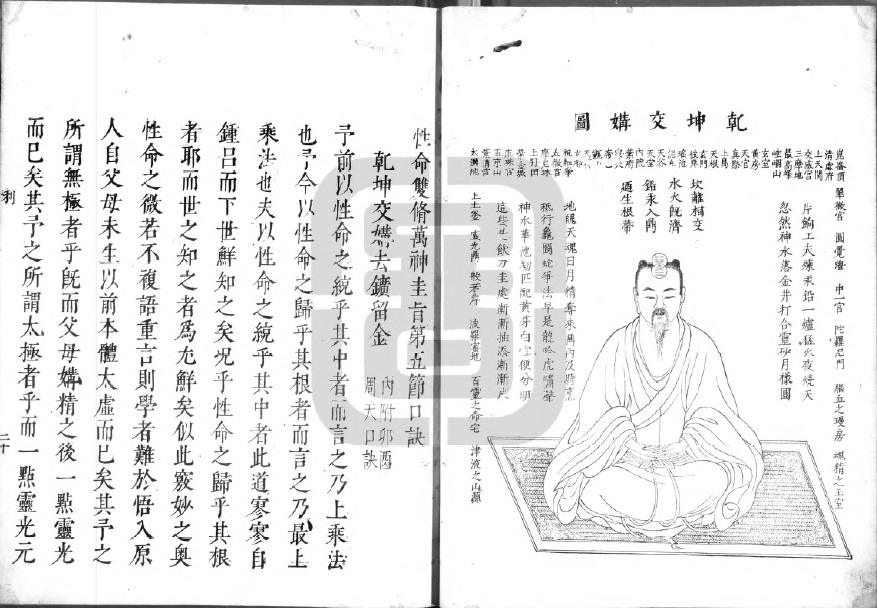 乾坤交媾圖
崑崙頂
清虛府
上天關
交感宮
三摩地
最高峰
崆峒山
玄室
黃房
天宮
真際
上島
天根
玄門
彼岸
瑤池
泥丸
天谷
天堂
內院
紫府
祝融峰
太微宮
摩尼珠
上丹田
玉京山
紫清宮
太淵池
翠微宮 圓覺海 中一宮 陀羅尼門 腦血之瓊房 魂精之玉室
片餉工夫煉汞鉛一爐猛火夜燒天
忽然神水落金井打合靈砂月樣圓
坎離相交
水火既濟
鉛汞入鬥
迺生根蒂
地魄天魂日月精奪來鼎內及時烹
秪行龜鬭蛇爭法早是龍吟虎嘯聲
神水華池初匹配黃芽白雪便分明
這些是飲刀圭處漸漸抽添漸漸成
上土釜 威光鼎 般若岸 波羅蜜地 百靈之命宅 津液之山源
性命雙脩萬神圭旨第五節口訣
乾坤交媾去鑛留金 內附卯酉
周天口訣
予前以性命之統乎其中者而言之乃上乘法
也予今以性命之歸乎其根者而言之乃最上
乘法也夫以性命之統乎其中者此道寥寥自
鍾呂而下世鮮知之矣況乎性命之歸乎其根
者耶而世之知之者為尤鮮矣似此竅妙之奧
性命之微若不複語重言則學者難於悟入原
人自父母未生以前本體太虛而已矣其予之
所謂無極者乎既而父母媾精之後一點靈光
而已矣其予之所謂太極者乎而一點靈光元
利
二十